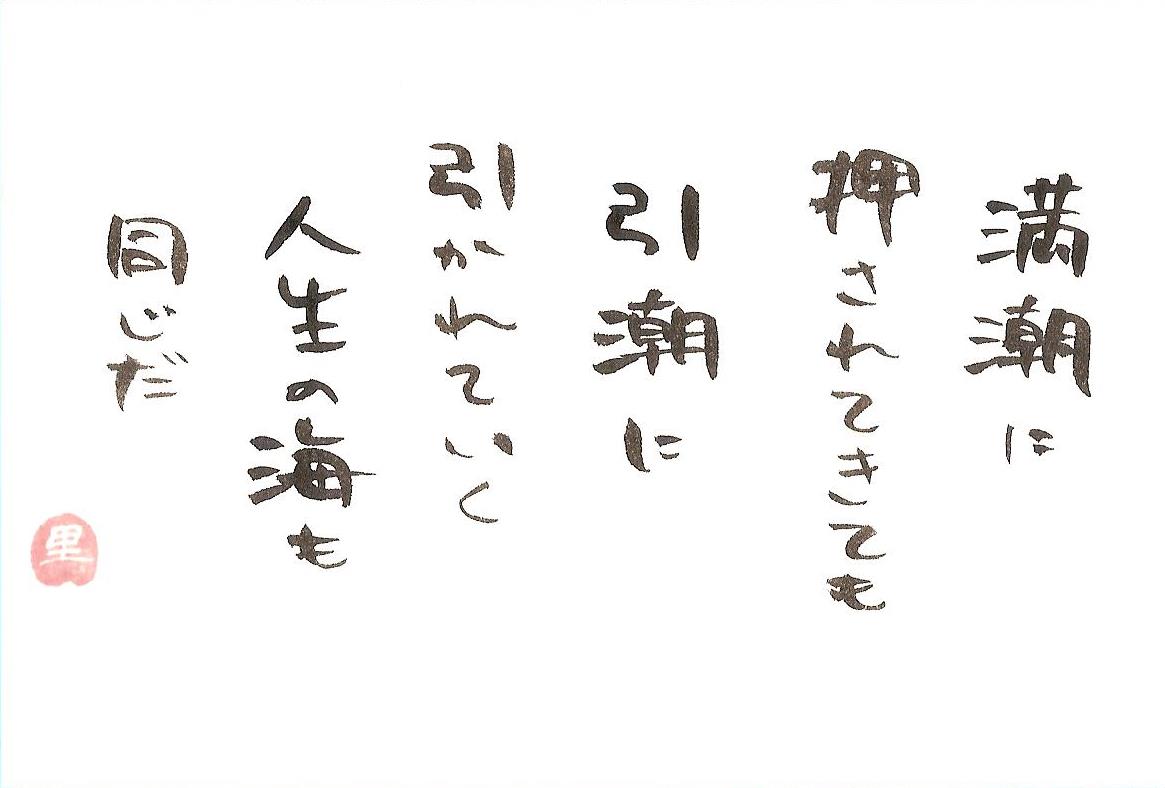 満潮に
押されてきても
引潮に
引かれていく
人生の海も
同じだ
里